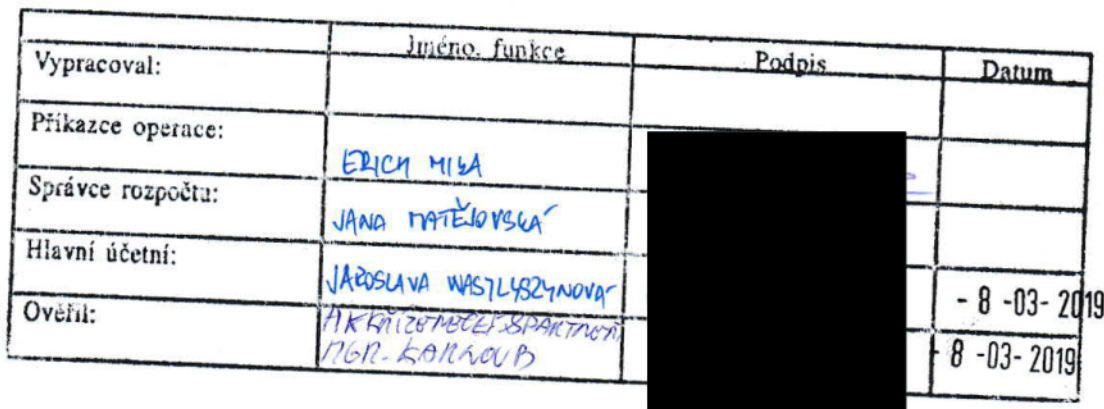 Jméno, funkce Podpis Datum
Vypracoval:
Příkazce operace:
ERICH
Správce rozpočtu:
JANA MATĚJOVSKÁ
Hlavní účetní:
JAROSLAVA WASYLYSZYNOVÁ - 8 -03- 2019
Ověřil:
AK
MGR. - 8 -03- 2019